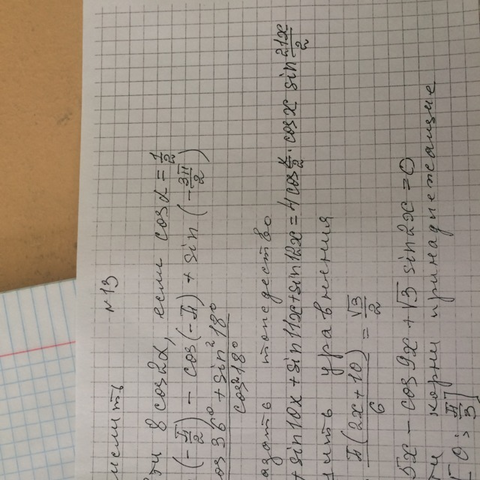 №13
числить
ти 8 cos2α, если cosα = 1/2
(-π/2) - cos(-π) + sin(-3π/2)
cos36° + sin²18° / cos²18°
азать тождество
+ sin10x + sin11x + sin12x = 4cos x/2 · cosx sin 21x/2
ить уравнения
π(2x+10)/6 = √3/2
5x - cos9x + √3 sin2x = 0
ти корни принадлежащие
[0; π/3]